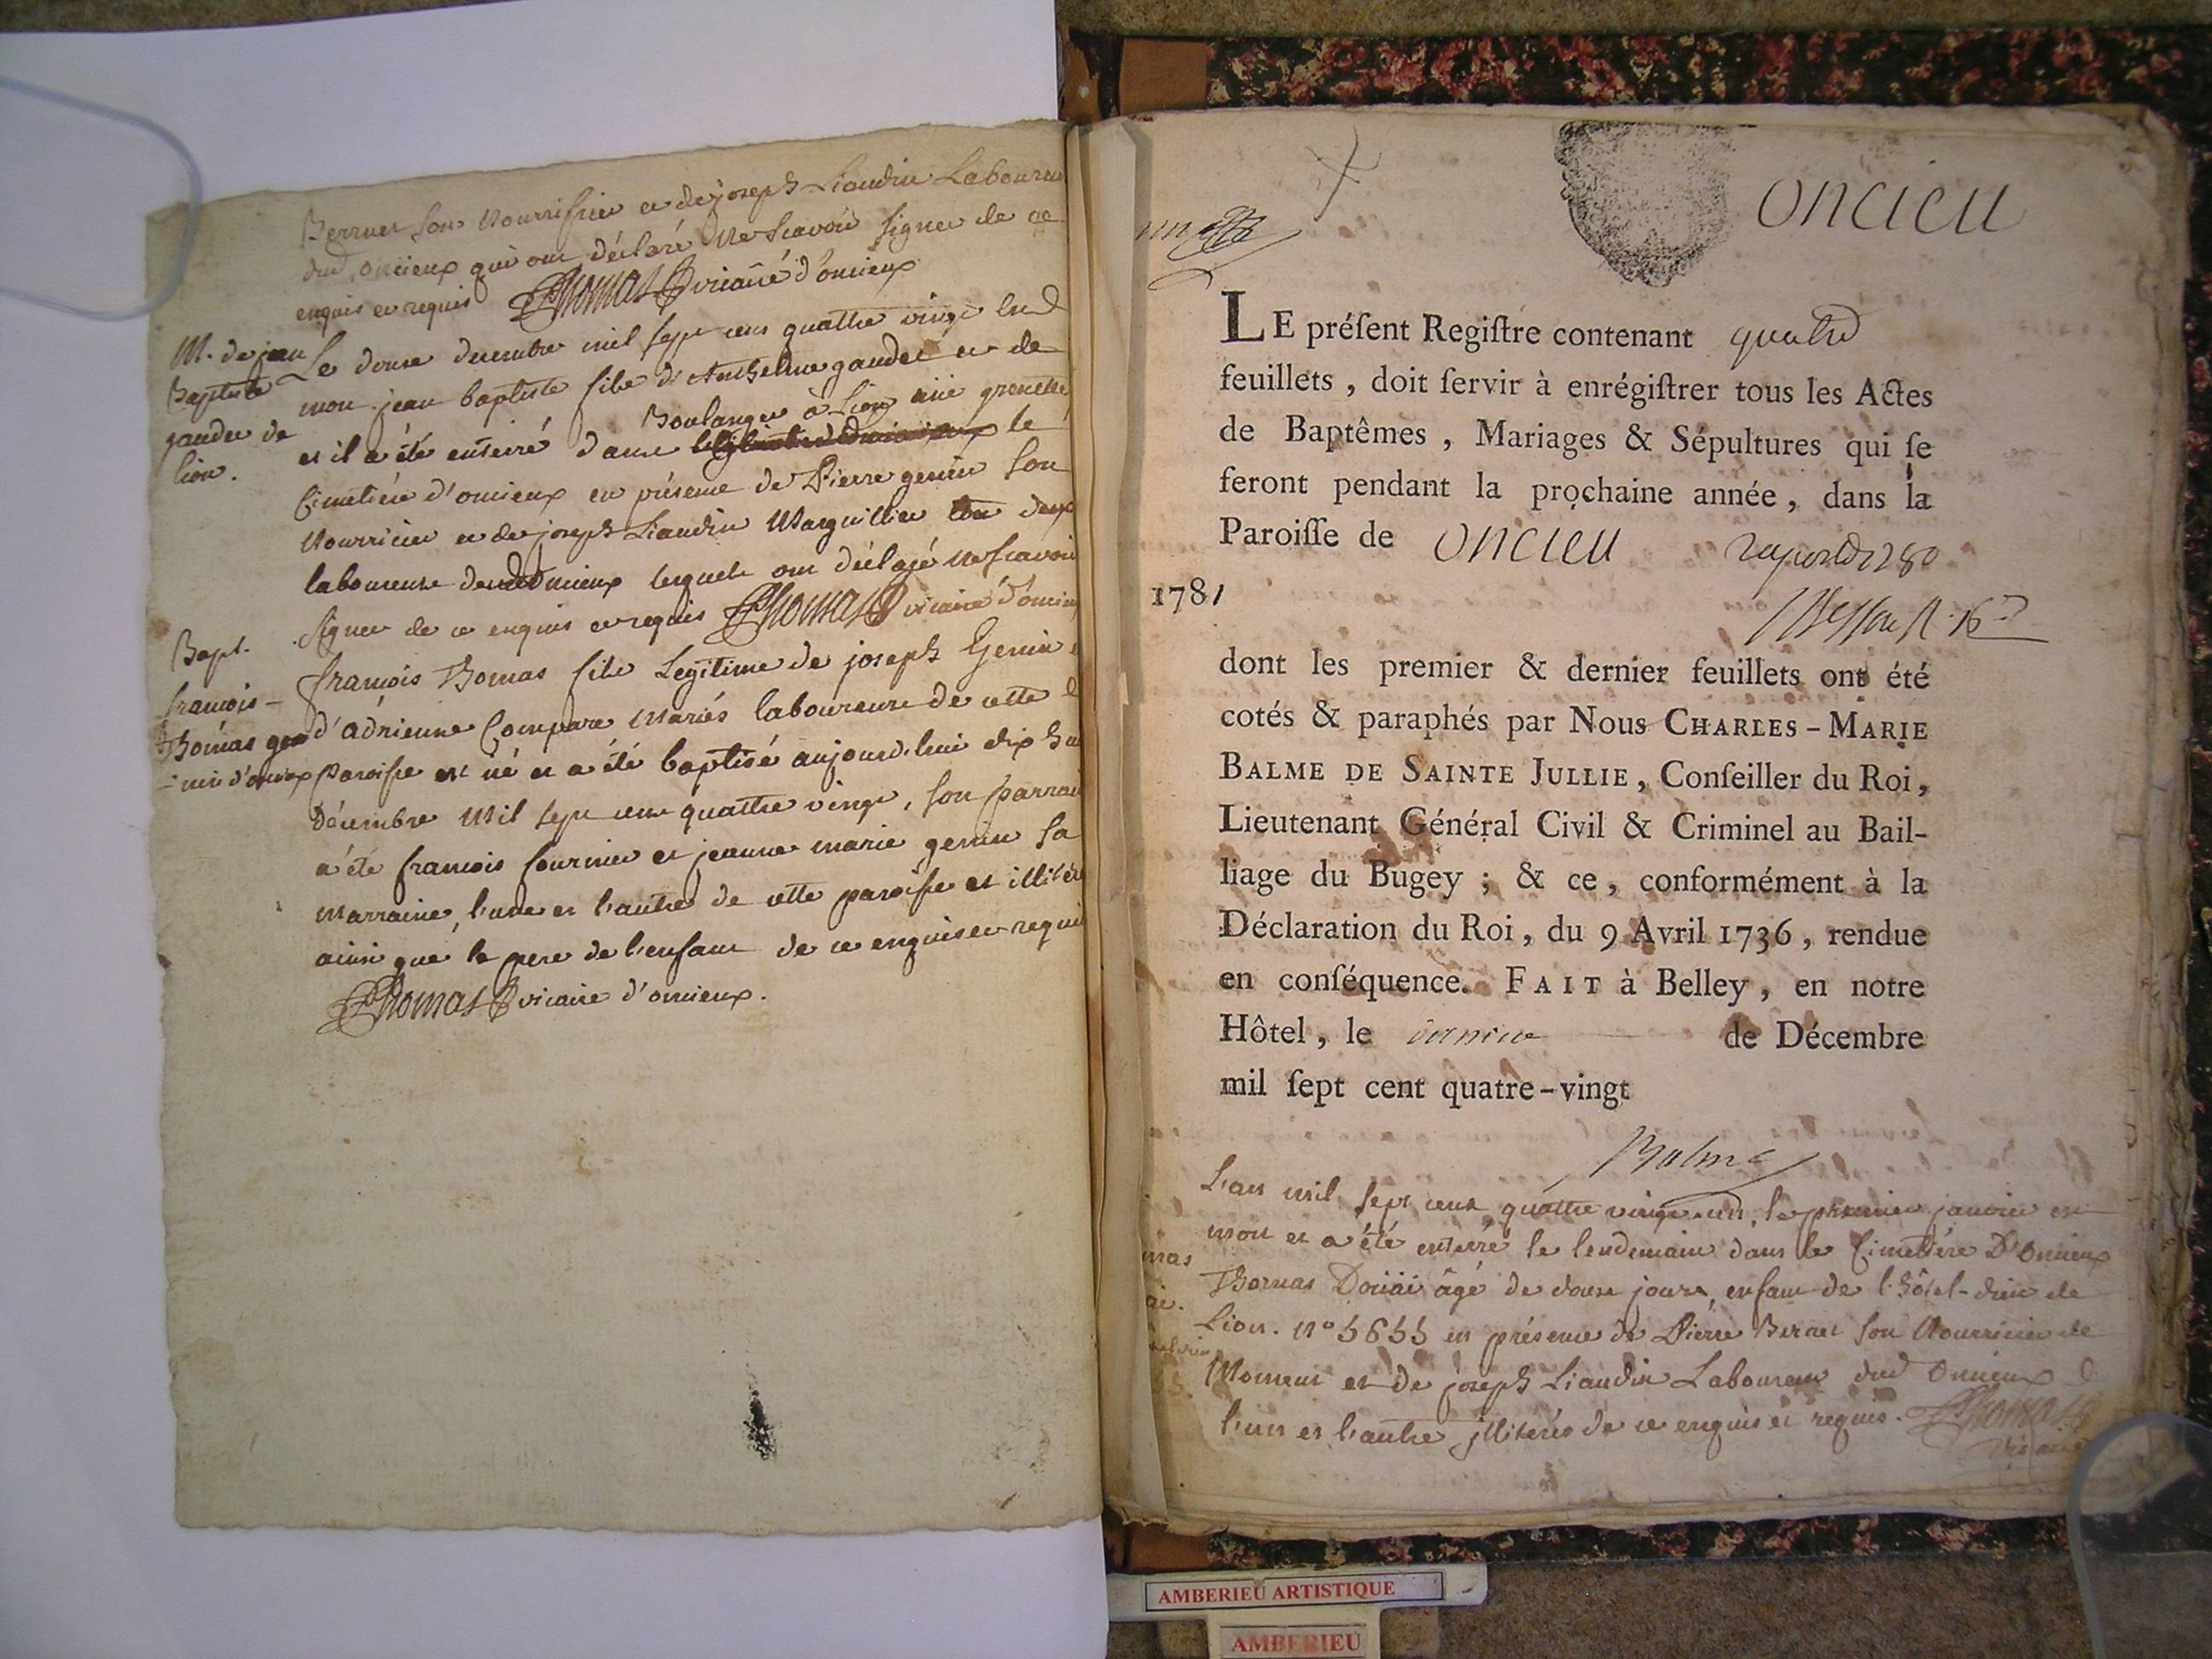 Berrnet son Nourrissier et de joseph Liaudin Laboureur
dud oncieux qui ont déclaré Ne scavoir signer de ce
enquis et requis Thomas vicaire d'oncieux
M. de jean
Baptiste
gaudet de
lion.
Le douse decembre mil sept cens quattre vingt est
mort jean baptiste fils d'Anthelme gaudet et de
Boulanger à Lion rüe grenette
et il a été enterré dans le
Cimetière d'oncieux en présence de Pierre genin son
Nourricier et de joseph Liaudin Marguillier tous deux
laboureurs dud oncieux lesquels ont déclaré ne scavoir
signer de ce enquis et requis Thomas vicaire d'oncieux
Bapt.
francois-
Thomas ge
-nin d'oncieux
francois Thomas fils Legitime de joseph Genin et
d'adrienne Compare Mariés laboureurs de cette
Paroisse est né et a été baptisé aujourd'hui dix huit
Décembre Mil sept cens quattre vingt, son parrain
a été francois fournier et jeanne marie genin sa
marraine, l'une et l'autre de cette paroisse et illiterés
ainsi que le pere de l'enfant de ce enquis et requis
Thomas vicaire d'oncieux.
oncieu
LE préſent Regiſtre contenant quatre
feuillets, doit ſervir à enrégiſtrer tous les Actes
de Baptêmes, Mariages & Sépultures qui ſe
feront pendant la prochaine année, dans la
Paroiſſe de oncieu
1781
dont les premier & dernier feuillets ont été
cotés & paraphés par Nous CHARLES-MARIE
BALME DE SAINTE JULLIE, Conſeiller du Roi,
Lieutenant Général Civil & Criminel au Bail-
liage du Bugey ; & ce, conformément à la
Déclaration du Roi, du 9 Avril 1736, rendue
en conſéquence. FAIT à Belley, en notre
Hôtel, le de Décembre
mil ſept cent quatre-vingt
Balme
L'an mil sept cens quattre vingt un, le premier janvier est
mort et a été enterré le lendemain dans le Cimetière D'Oncieux
Thomas Doüai âgé de douse jours, enfant de l'hôtel-dieu de
Lion. n° 5655 en présence de Pierre Bernet son Nourricier de
Morneut et de joseph Liaudin Laboureur dud Oncieux
l'un et l'autre jlliterés de ce enquis et requis. Thomas
vicaire
AMBERIEU ARTISTIQUE
AMBERIEU